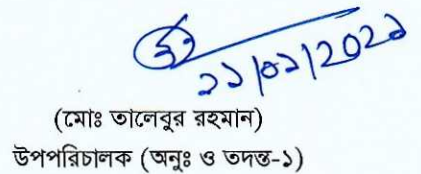 ১১/০১/2021
(মোঃ তালেবুর রহমান)
উপপরিচালক (অনুঃ ও তদন্ত-১)